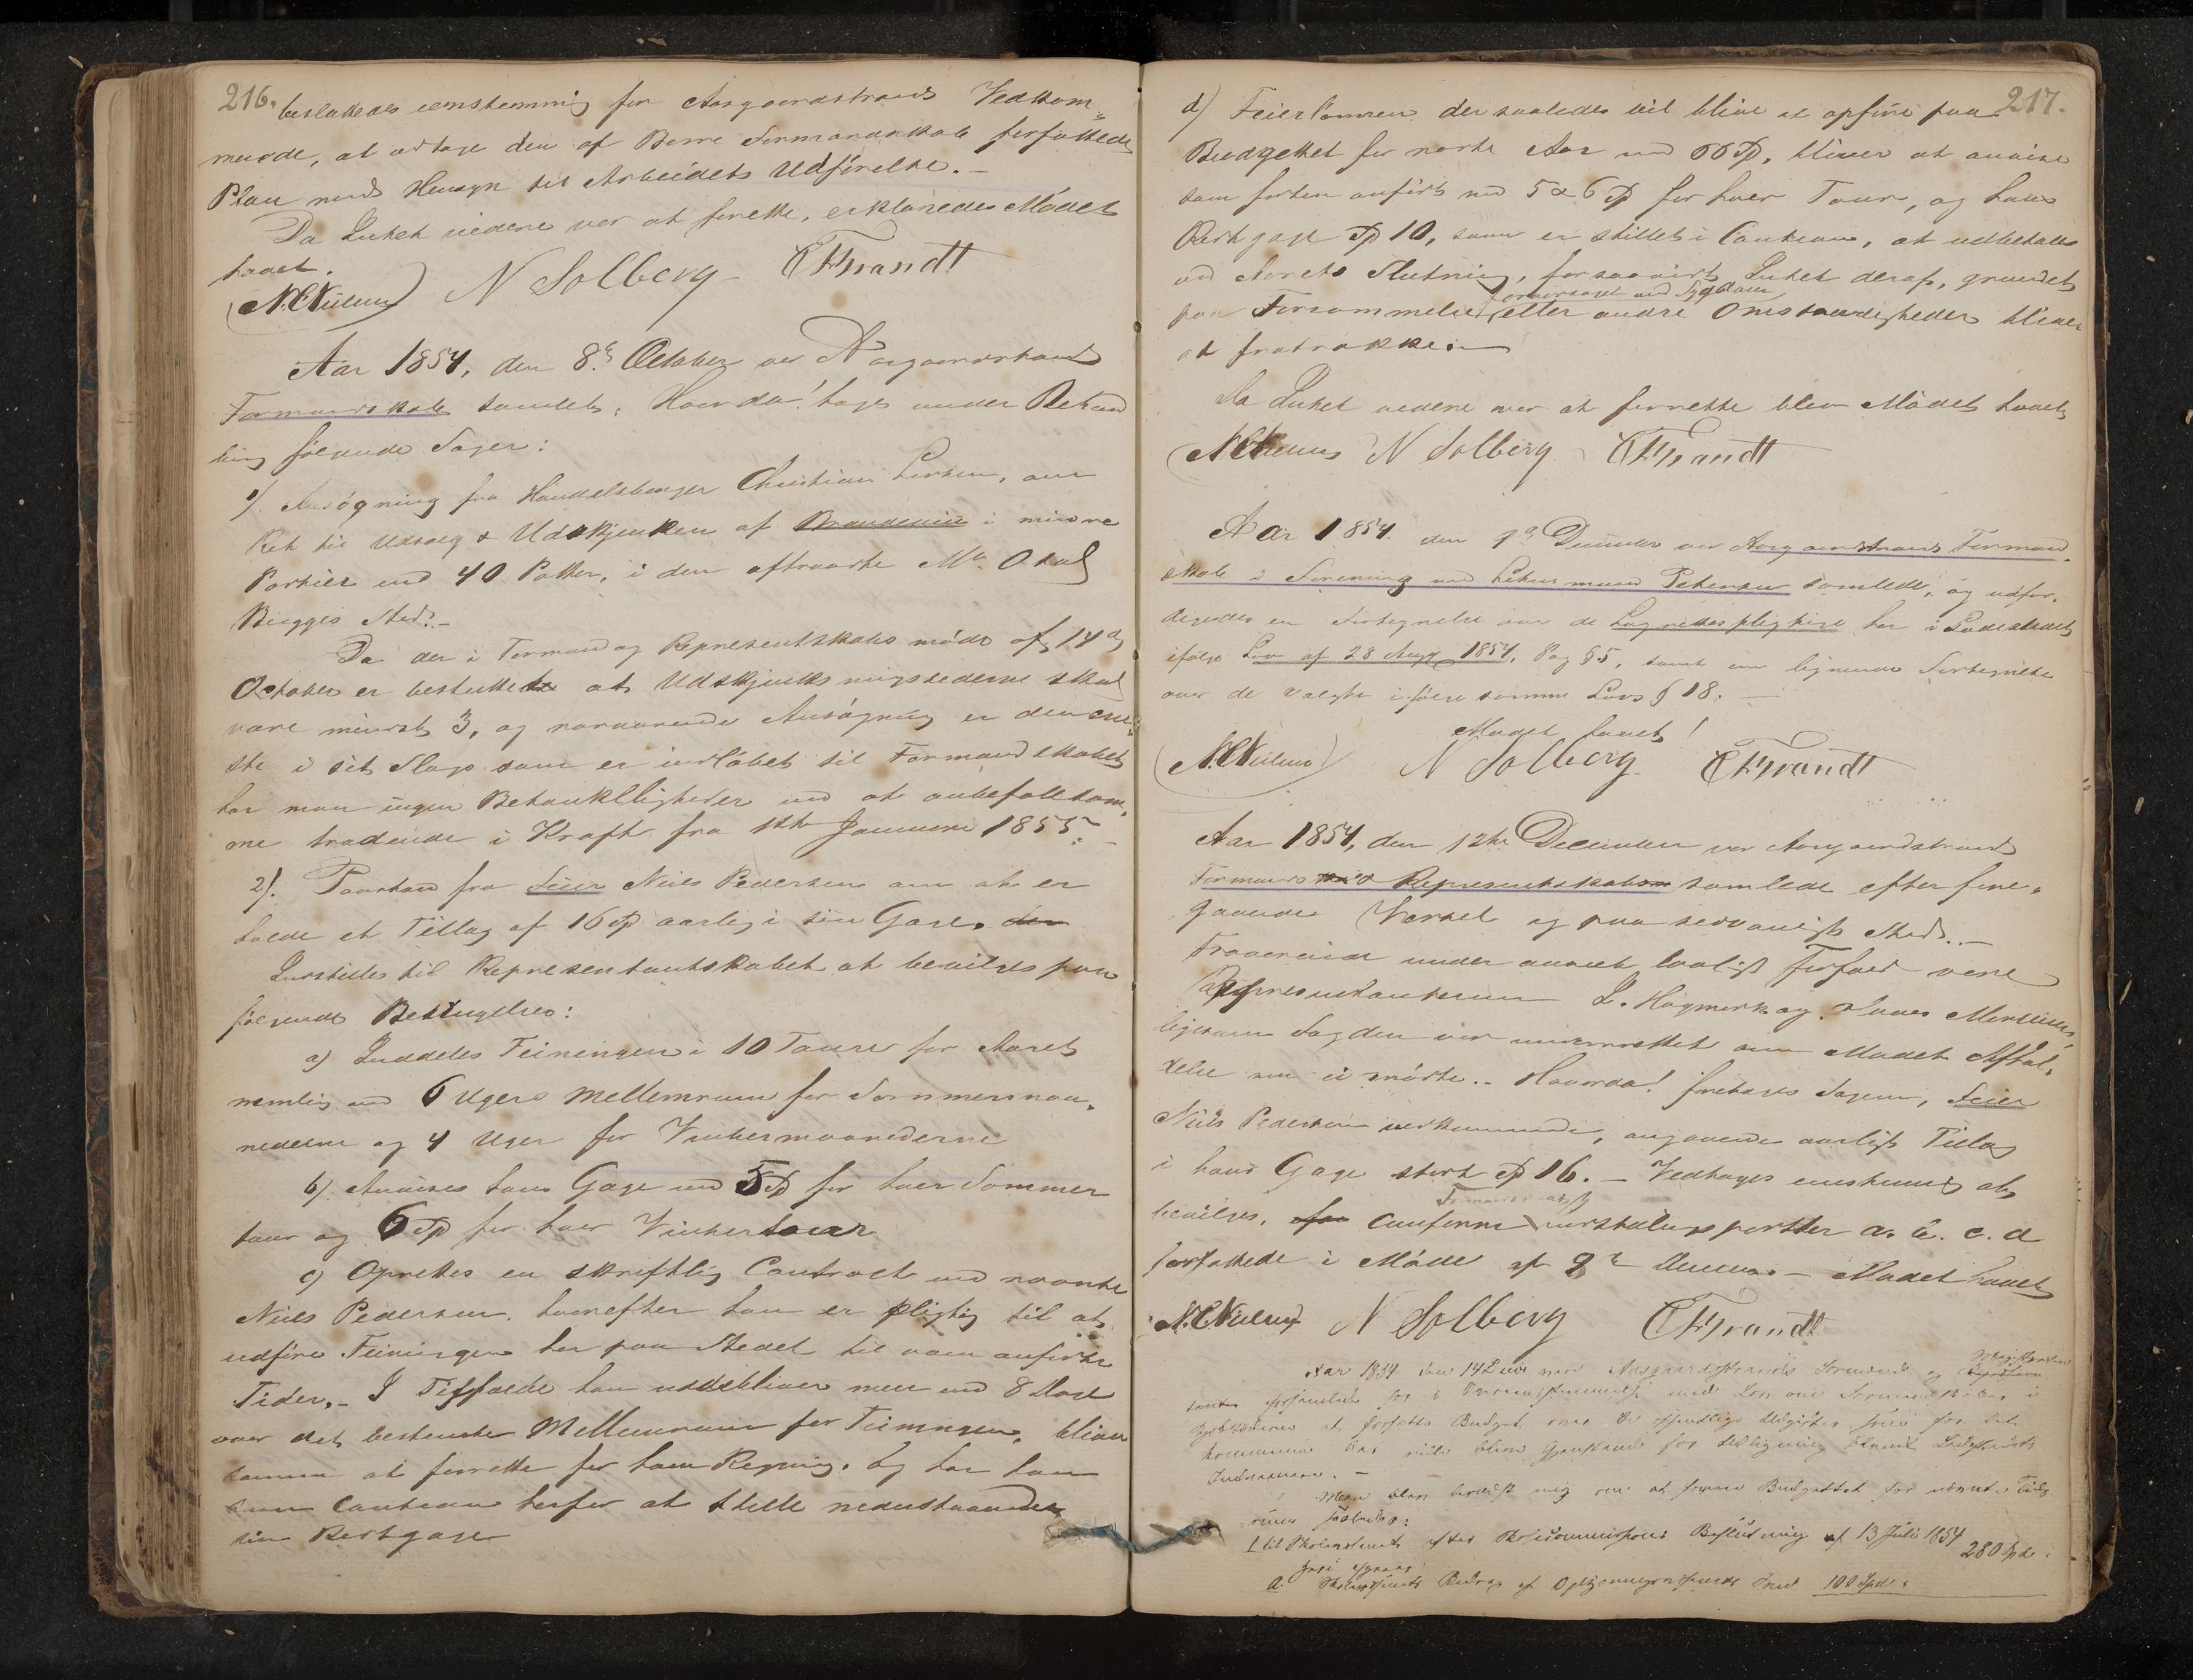 216.
besluttedes eenstemmig for Aasgaardstrands Vedkom-
mende, at vedtage den af Borre Formandskab forfattede
Plan med Hensyn til Arbeidets Udførelse.-
Da Intet videre var at forrette, erklæredes Mødet
hævet.
N. C. Nielsen N Solberg Brandt
Aar 1854, den 8de October var Aasgaardstrands
Formandskab samlet; Hvorda! toges under Behand
ling følgende Sager:
1/. Ansøgning fra Handelsborger Christian Larsen, om
Ret til Udsalg & Udskjenken af Brændeviin i mindre
Partier end 40 Potter, i den aftraadte
Sted.-
Da der i Formand og Representskabs møde af 14de
October er besluttet at Udskjenkningsstederne skal
være mindst 3, og nærværende Ansøgning er den ene-
ste i sit Slags som er indløbet til Formandskabet
har man ingen Betænkeligheder ved at anbefale sam-
me trædende i Kraft fra 1ste Januari 1855.-
2/. Paastand fra Feier Niels Pedersen om at er
holde et Tillæg af 16 Sp aarlig i sin Gage. den
Indstilles til Representantskabet at bevilges paa
følgende Betingelser:
a) Inddeles Feiningen i 10 Toure for Aaret
nemlig med 6 Ugers Mellemrum for Sommermaa-
nederne og 4 Uger for Vintermaanederne
b). Anvises hans Gage med 5 Sp for hver Sommer
tour og 6 Sp for hver Vintertour
c) Oprettes en skriftlig Contract med nævnte
Niels Pedersen, hvorefter han er pligtig til at
udføre Feiningen her paa Stedet til oven anførte
Tider.- I Tilfælde han udebliver meer end 8 Dage
over det bestemte Mellemrum for Feiningen, bliver
samme at forrette for hans Regning. Og har han
som Caution herfor at stille nedenstaaende
sin Restgage
217.
d) Feierlønnen der saaledes vil blive at opføre paa
Budgettet for næste Aar med 66 Sp, bliver at anvise
som forhen anført med 5 & 6 Sp for hver Tour, og hans
Restgage Sp 10, som er stillet i Caution, at udbetales
ved Aarets Slutning, forsaavidt Intet deraf, grundet
foraarsaget ved Sygdom
paa Forsømmelse eller andre Omstændigheder bliver
at fratrække.
Da Intet videre var at forrette blev Mødet hævet
N. C. Nielsen N Solberg Brandt
Aar 1854 den 9de December var Aasgaardstrands Formand-
skab i Forening med Lehnsmand Petersen samlede, og udfær-
digedes en Fortegnelse over de Lagrettespligtige her i Ladestedet
ifølge Lov af 28 Aug 1854, Pag §5, samt en lignende Fortegnelse
over de valgte ifølge samme Lovs § 18.-
Mødet hævet!
N. C. Nielsen N Solberg Brandt
Aar 1854, den 12te December var Aasgaardstrands
Formand & Representskab samlede efter fore-
gaaende Varsel og paa sedvanligt Sted.-
Fraværende under anmeldt lovligt Forfald vare
Representanterne L. Høgmark og
ligesom Sagden var underrettet om Mødet
delse men ei mødte.- Hvorda! foretoges Sagen, Feier
Niels Pedersen vedkommende, angaaende aarligt Tillæg
i hans Gage stort Sp 16.- Vedtoges eenstemmig at
Formandskabets
bevilges, conforme indstillings poster a. b. c. d
forfattede i Møde af 8de - Mødet hævet
N. C. Nielsen N Solberg Brandt
Aar 1854 den 14 Decbr var Aasgaardstrands Formand og
forsamlede for i Overensstemmelse med Lov om Formandskaber i
Kjøbstæderne at forfatte Budget over de offentlige Udgifter som for det
kommende Aar ville blive Gjenstand for Udligning blandt Ladestedets
Indvaanere.-
Man blev herved enig om at Budgettet for nævnte Tids
rum saaledes:
1 til Skolevæsenet efter Skolecommissionens Beslutning af 13 Juli 1854 280 Spd.
a. Bidrag af Oplysningsvæsenets Fond 100 Spd.